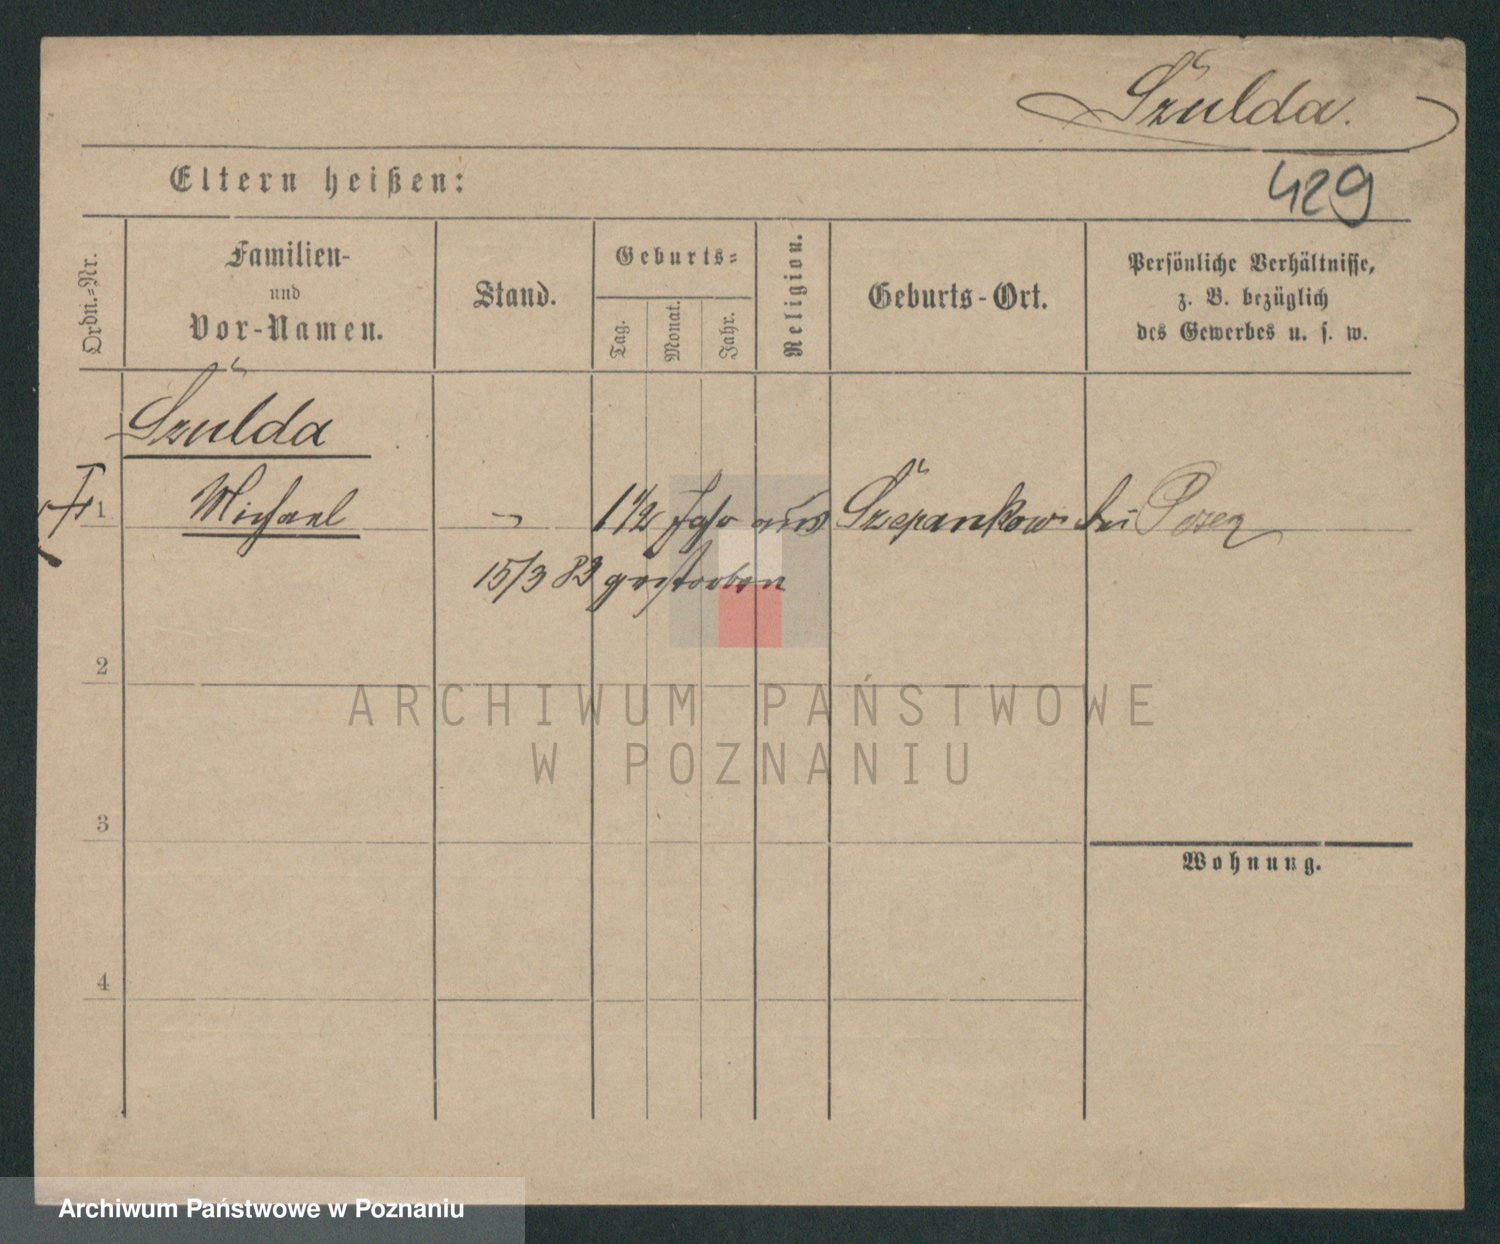 Szulda.
Eltern heißen:
429
Ordn.=Nr.
Familien-
und
Vor-Namen.
Stand.
Geburts=
Tag.
Monat.
Jahr.
Religion.
Geburts-Ort.
Persönliche Verhältnisse,
z. B. bezüglich
des Gewerbes u. s. w.
Szulda
1 Michael - 1 1/2 Jahr aus Szepankowo bei Posen
15/3 83 gestorben
2
ARCHIWUM PAŃSTWOWE
W POZNANIU
3
Wohnung.
4
Archiwum Państwowe w Poznaniu